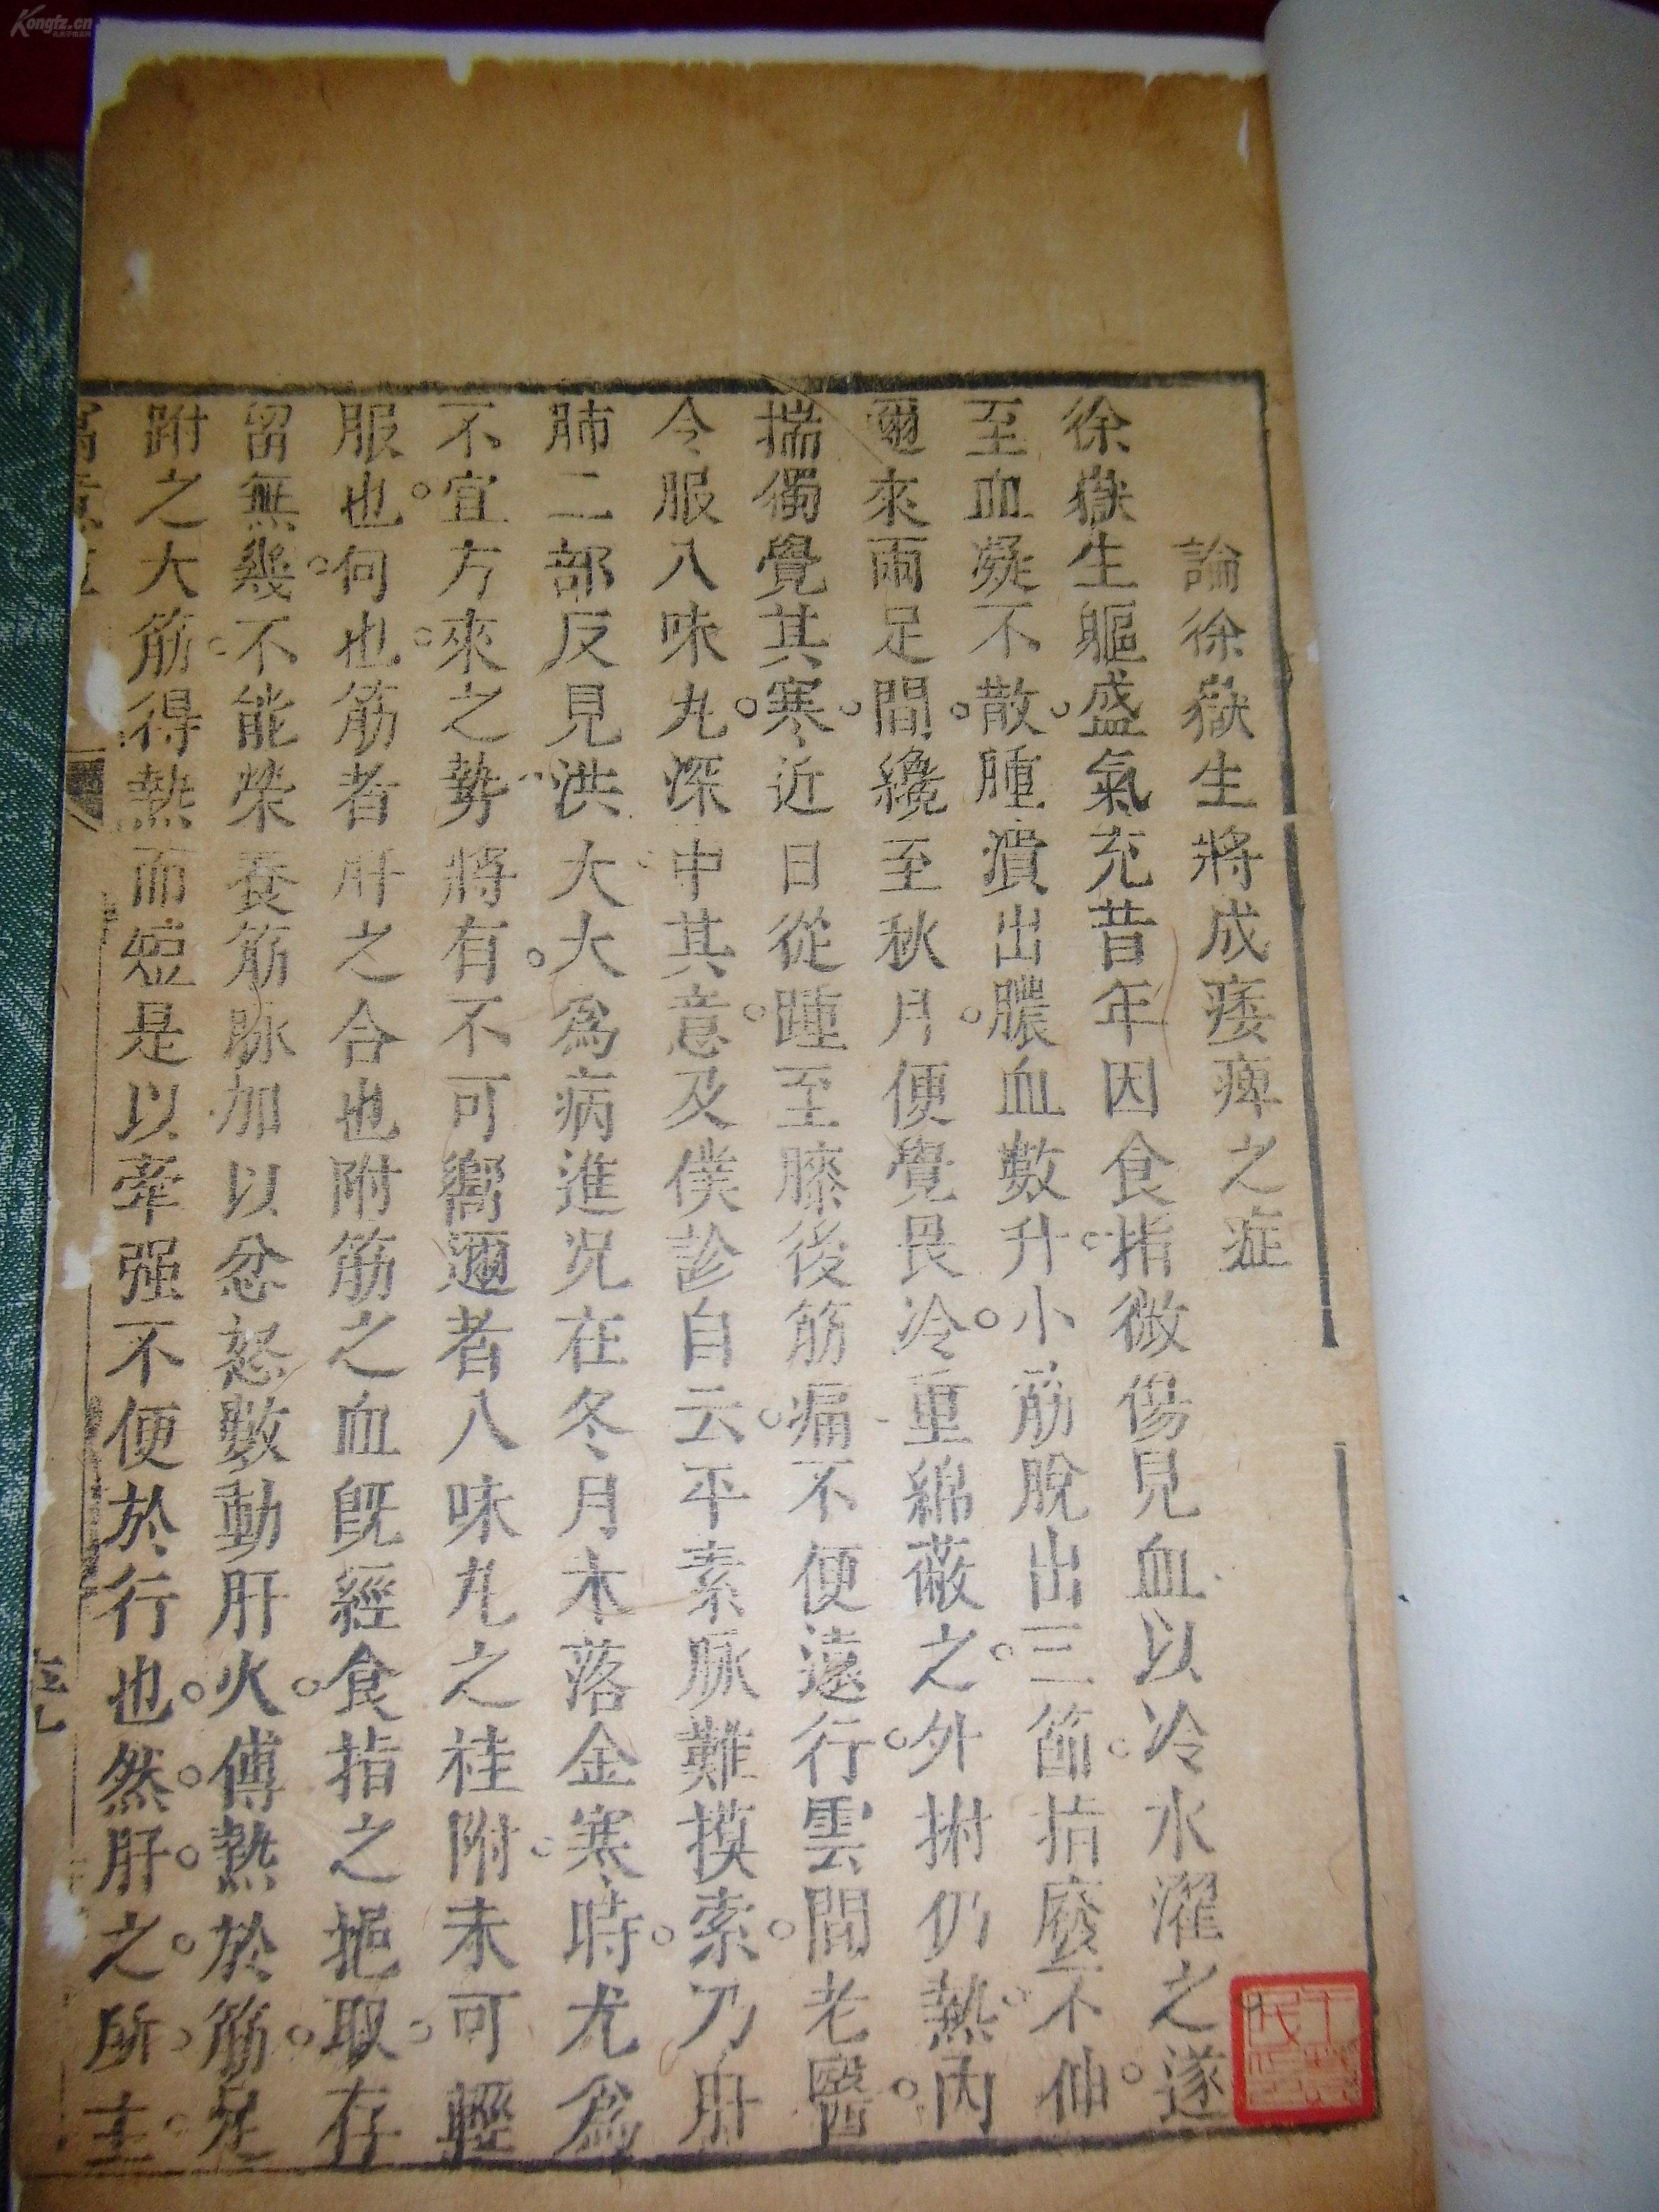 論徐嶽生將成痿痺之症
徐嶽生軀盛氣充昔年因食指微傷見血以冷水濯之遂
至血凝不散腫潰出膿血數升小筋脫出三節指廢不伸
邇來兩足間纔至秋月便覺畏冷重綿蔽之外拊仍熱內
揣獨覺其寒近日從踵至膝後筋痛不便遠行雲間老醫
令服八味丸深中其意及僕診自云平素脉難摸索乃肝
肺二部反見洪大大為病進況在冬月木落金寒時尤為
不宜方來之勢將有不可嚮邇者八味丸之桂附未可輕
服也何也筋者肝之合也附筋之血既經食指之挹取存
留無幾不能榮養筋脉加以忿怒數動肝火傳熱於筋足
跗之大筋得熱而短是以牽强不便於行也然肝之所主
Kongfz.cn